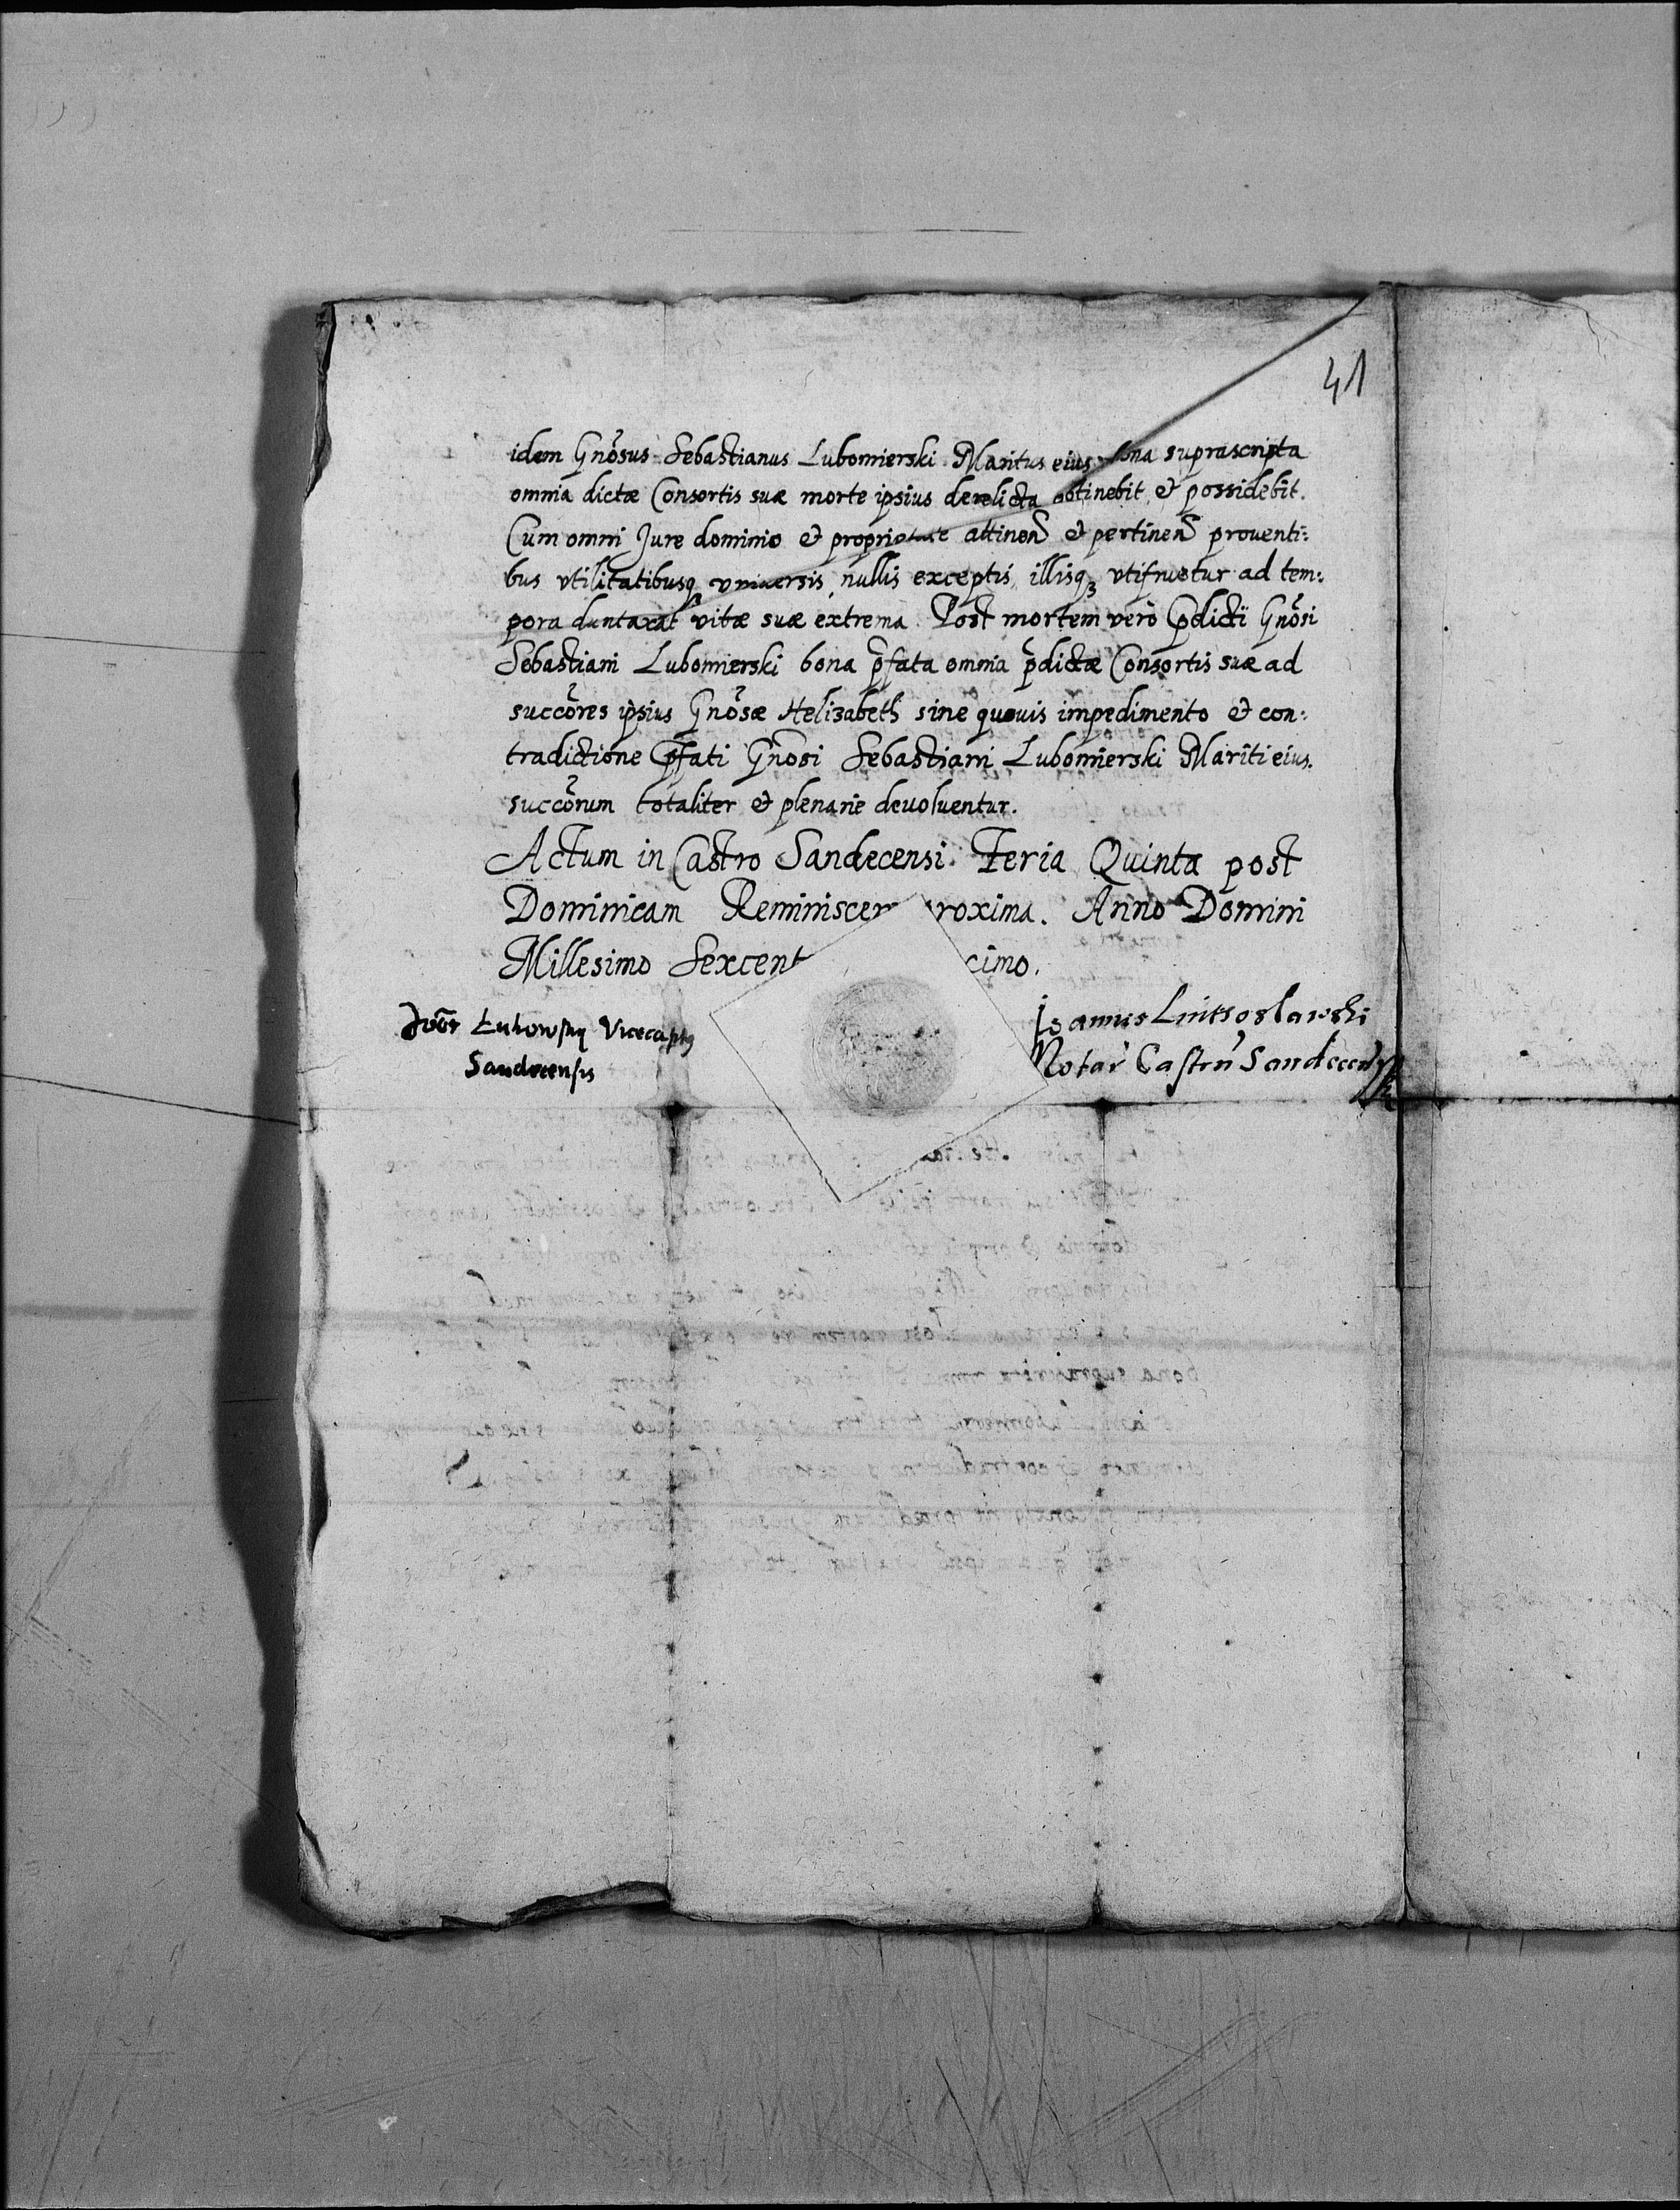 41
idem Gnōsus Sebastianus Lubomierski Maritus eius bona suprascripta
omnia dictæ Consortis suæ morte ipsius derelicta obtinebit et possidebit.
Cum omni Jure dominio et proprietate attinen et pertinen prouenti:
bus vtilitatibusq3 vniuersis nullis exceptis illisq3 vtifruetur ad tem:
pora duntaxat vitæ suæ extrema. Post mortem verò p̄dicti Gnōsi
Sebastiani Lubomierski bona p̄fata omnia p̄dictæ Consortis suæ ad
succōres ipsius Gnōsæ Helizabeth sine quouis impedimento et con:
tradictione p̄fati Gnōsi Sebastiani Lubomierski Mariti eius.
succōrum totaliter et plenarie deuoluentur.
Actum in Castro Sandecensi. Feria Quinta post
Dominicam Reminiscer roxima. Anno Domini
Millesimo Sexcent cimo.
Vicecaptus
Sandecensis
Notar Castren Sandecen